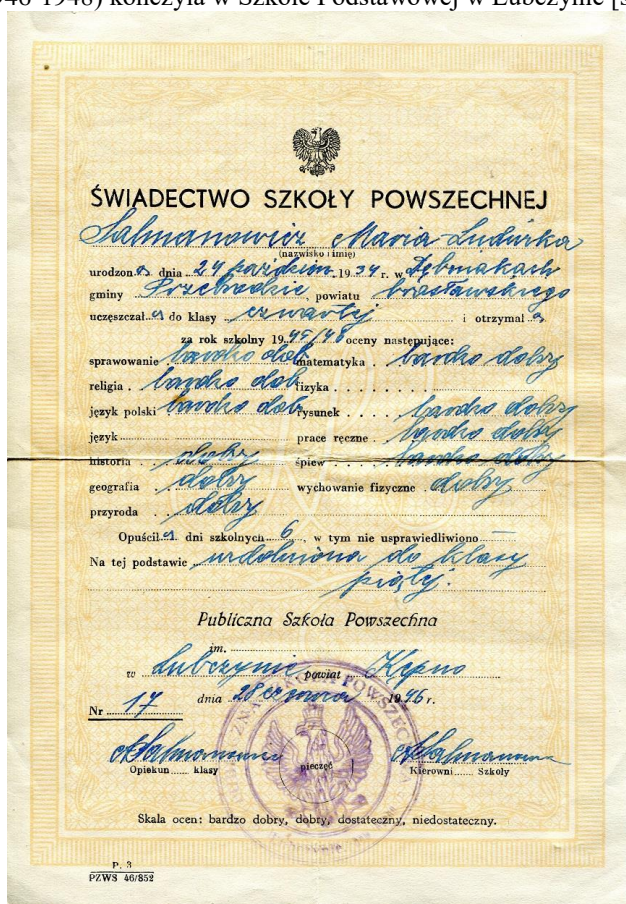 946-1948) kończyła w Szkole Podstawowej w Łubczynie [s
ŚWIADECTWO SZKOŁY POWSZECHNEJ
Salmanowicz Maria-Ludwika
(nazwisko i imię)
urodzona dnia 24 paździer. 1934 r. w
gminy Przebrodzie, powiatu brasławskiego
uczęszczała do klasy czwartej i otrzymała
za rok szkolny 1945/46 oceny następujące:
sprawowanie bardzo dob matematyka . bardzo dobry
religia . bardzo dob fizyka . . . . . . . .
język polski bardzo dob rysunek . . . . . bardzo dobry
język prace ręczne . bardzo dobry
historia . . dobry śpiew . . . . bardzo dobry
geografia . dobry wychowanie fizyczne dobry
przyroda . dobry
Opuściła dni szkolnych 6, w tym nie usprawiedliwiono —
Na tej podstawie uzdolniona do klasy
piątej.
Publiczna Szkoła Powszechna
im.
w Łubczynie powiat Kępno
Nr 17 dnia 28 czerwca 1946 r.
Opiekun klasy pieczęć Kierowni Szkoły
Skala ocen: bardzo dobry, dobry, dostateczny, niedostateczny.
P. 3
PZWS 46/852